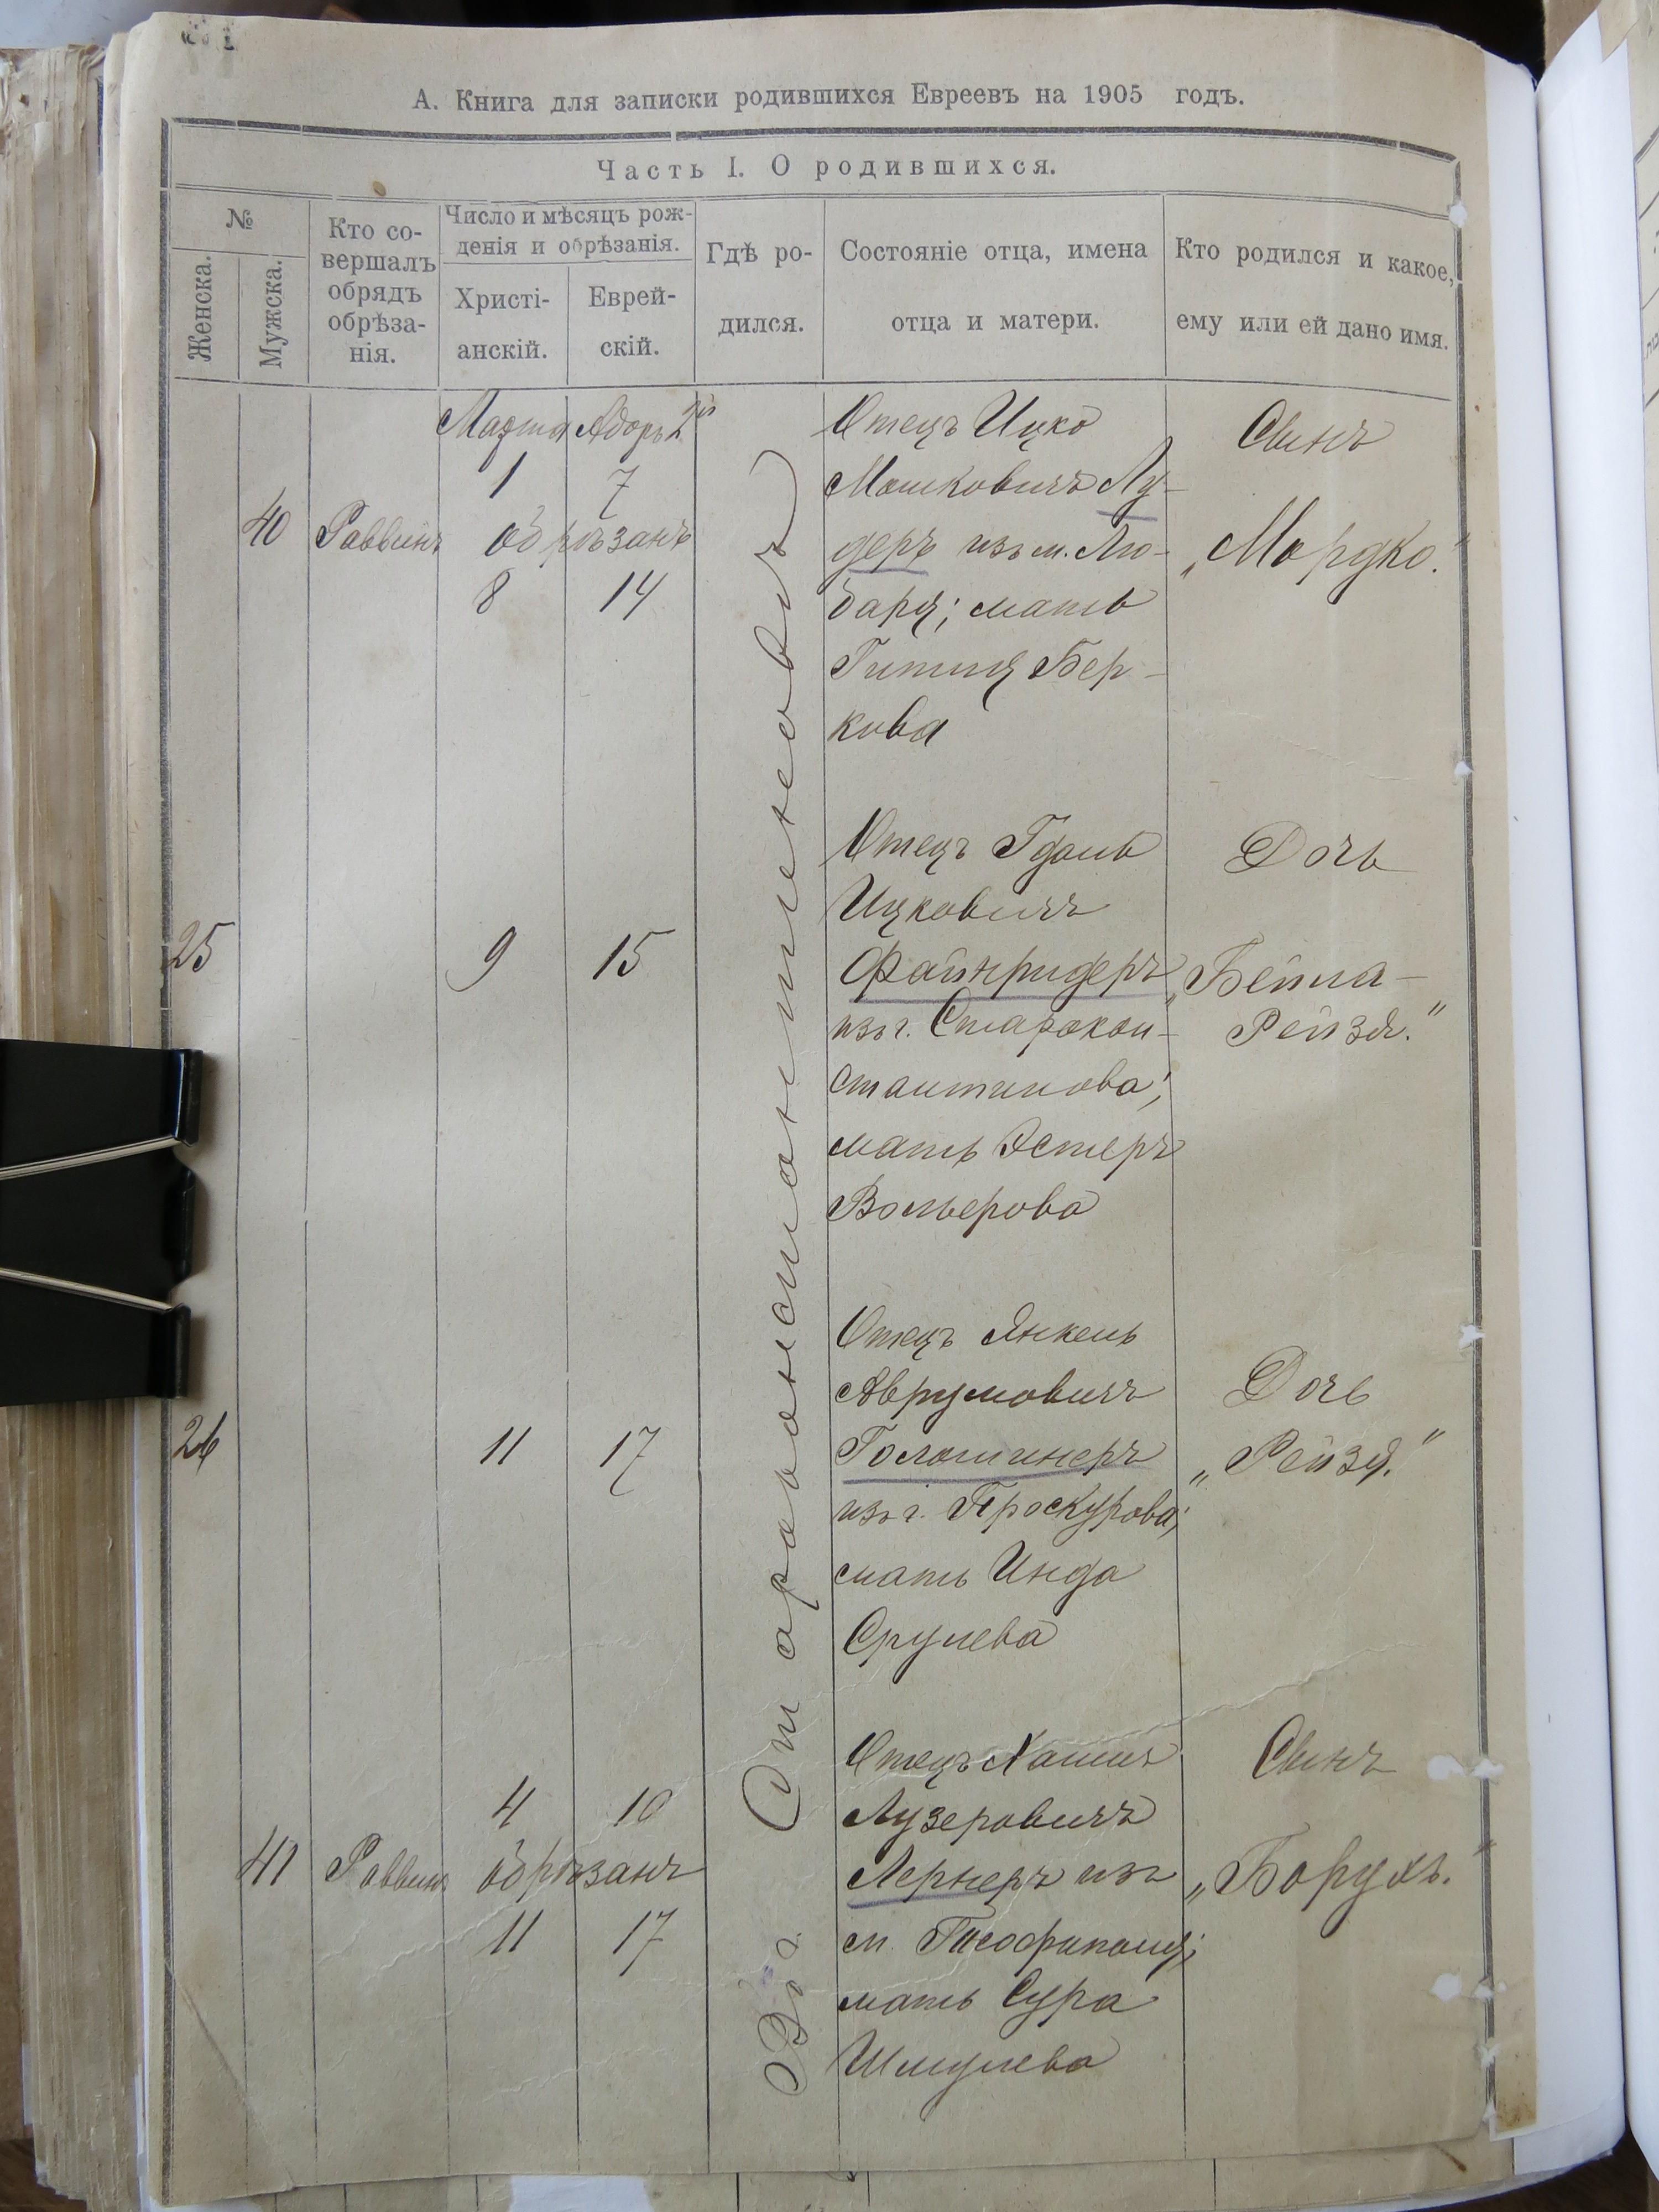 А. Книга для записки родившихся Евреевъ на 1905 годъ.
Часть I. О родившихся.
№
Женска.
Мужска.
Кто со-
вершалъ
обрядъ
обрѣза-
нія.
Число и мѣсяцъ рож-
денія и обрѣзанія.
Христі-
анскій.
Еврей-
скій.
Гдѣ ро-
дился.
Состояніе отца, имена
отца и матери.
Кто родился и какое,
ему или ей дано имя.
Въ г. Староконстантиновѣ
40
Раввинъ
Марта Адоръ 2й
1 7
обрѣзанъ
8 14
Отецъ Ицко
Мошковичъ Лу-
деръ изъ м. Лю-
бара; мать
Гитля Бер-
кова
Сынъ
„Мордко."
25
9 15
Отецъ Гдаль
Ицковичъ
Файнридеръ
изъ г. Старокон-
стантинова;
мать Эстеръ
Вольерова
Дочь
„Бейла-
Рейзя."
26
11 17
Отецъ Янкель
Аврумовичъ
Голотинеръ
изъ г. Проскурова;
мать Инда
Срулева
Дочь
„Рейзя."
41
Раввинъ
4 10
обрѣзанъ
11 17
Отецъ Хаимъ
Лузеровичъ
Лернеръ изъ
м. Теофиполя;
мать Сура
Шмулева
Сынъ
„Борухъ."